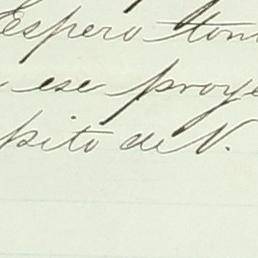 Espero tom
ese proye
pito de V.